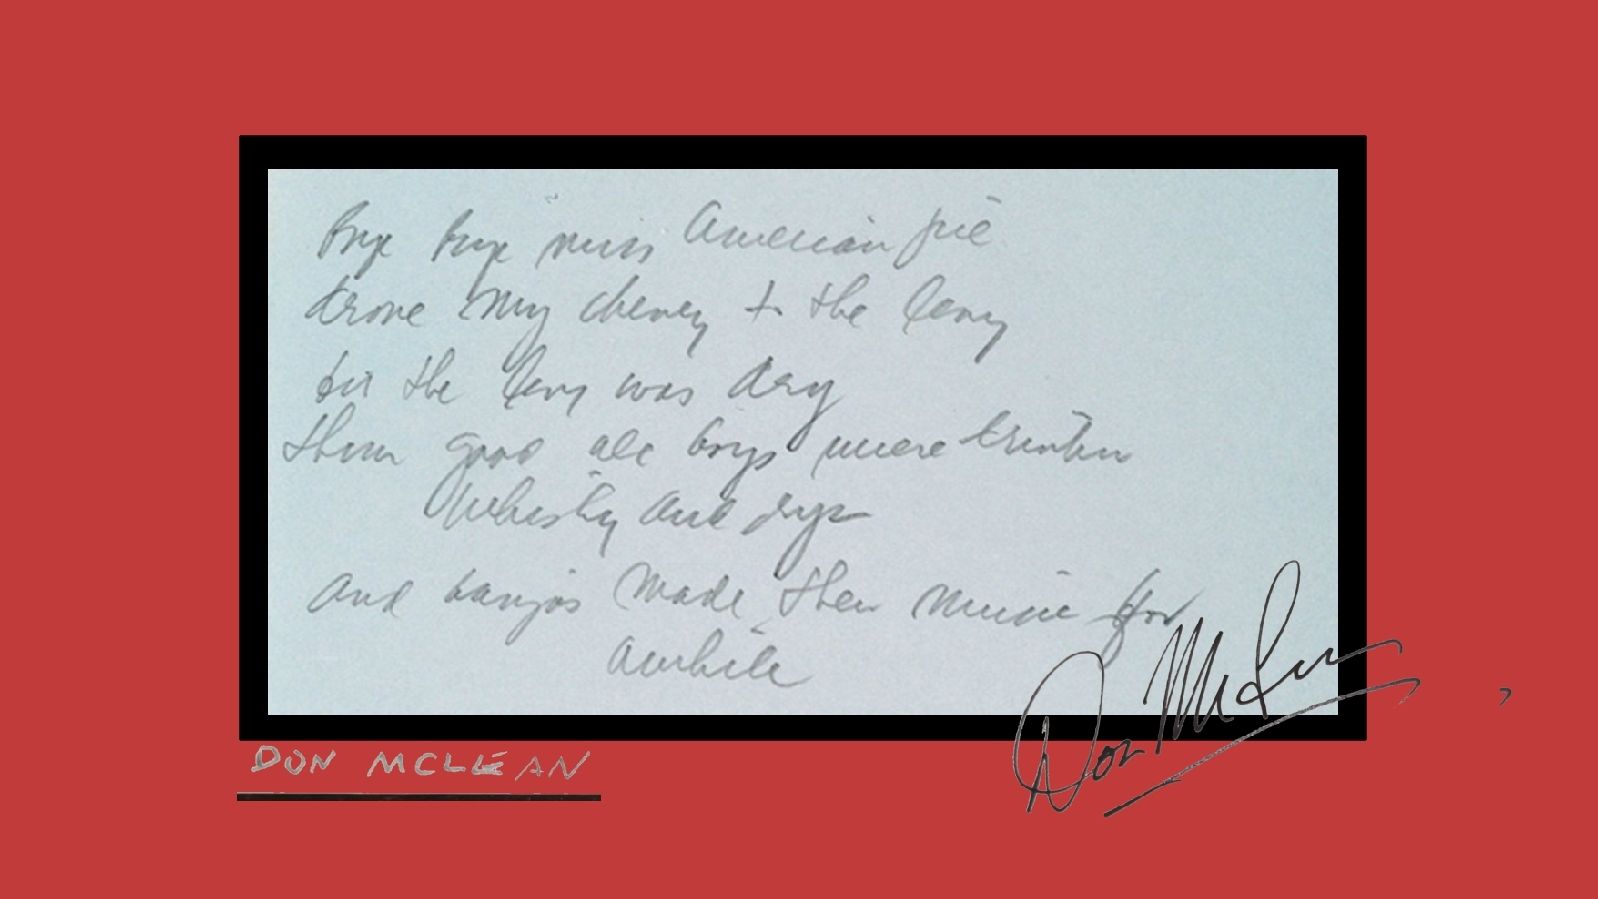 Bye bye miss American pie
drove my chevey to the levy
but the levy was dry
them good ole boys were drinken
Whisky and rye
And banjos made their music for
awhile
Don McLean
DON MCLEAN